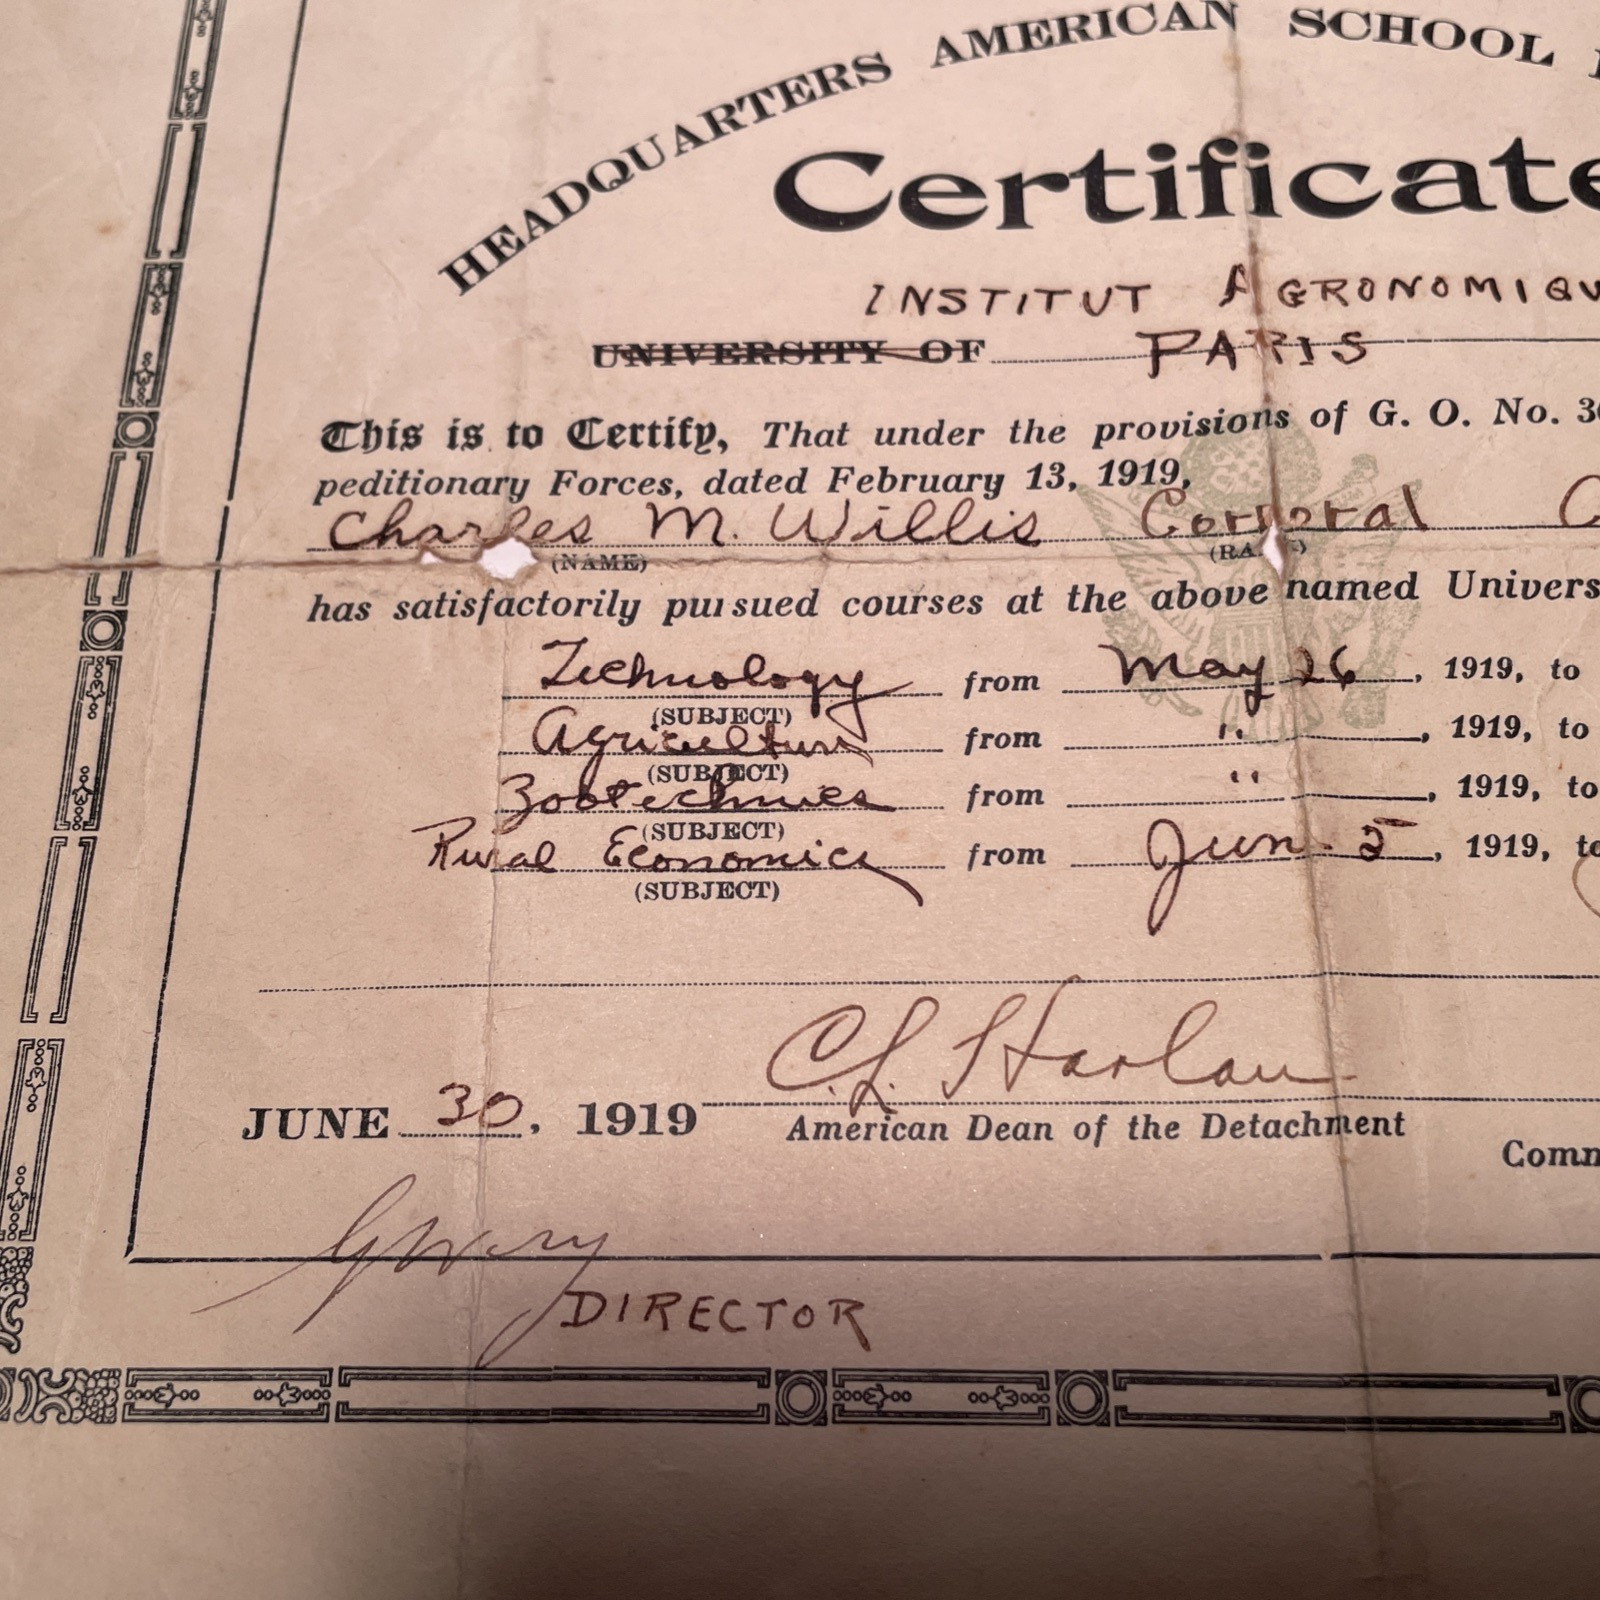 HEADQUARTERS AMERICAN SCHOOL
Certificate
INSTITUT AGRONOMIQU
UNIVERSITY OF PARIS
This is to Certify, That under the provisions of G. O. No. 3
peditionary Forces, dated February 13, 1919,
Charles M. Willis Corporal C
(NAME) (RA
has satisfactorily pursued courses at the above named Univers
Technology from May 26, 1919, to
(SUBJECT)
Agriculture from ", 1919, to
(SUBJECT)
Zootechnics from ", 1919, to
(SUBJECT)
Rural Economics from Jun. 5, 1919, to
(SUBJECT)
C. L. Harlan
JUNE 30, 1919
American Dean of the Detachment
Comm
DIRECTOR